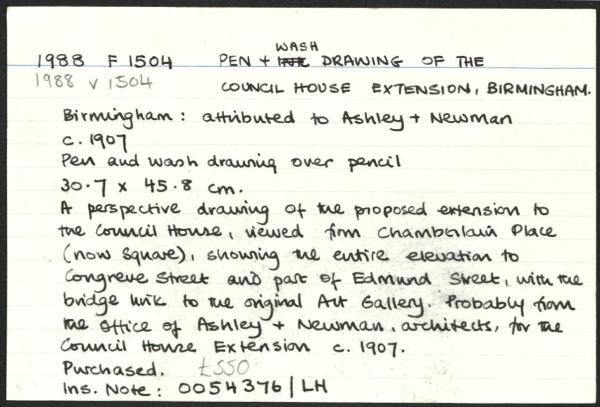 WASH
1988 F 1504 PEN + INK DRAWING OF THE
1988 V 1504 COUNCIL HOUSE EXTENSION, BIRMINGHAM.
Birmingham: attributed to Ashley + Newman
c. 1907
Pen and wash drawing over pencil
30.7 x 45.8 cm.
A perspective drawing of the proposed extension to
the Council House, viewed from Chamberlain Place
(now Square), showing the entire elevation to
Congreve Street and part of Edmund Street, with the
bridge link to the original Art Gallery. Probably from
the office of Ashley + Newman, architects, for the
Council House Extension c. 1907.
Purchased. £550
Ins. Note: 0054376/LH